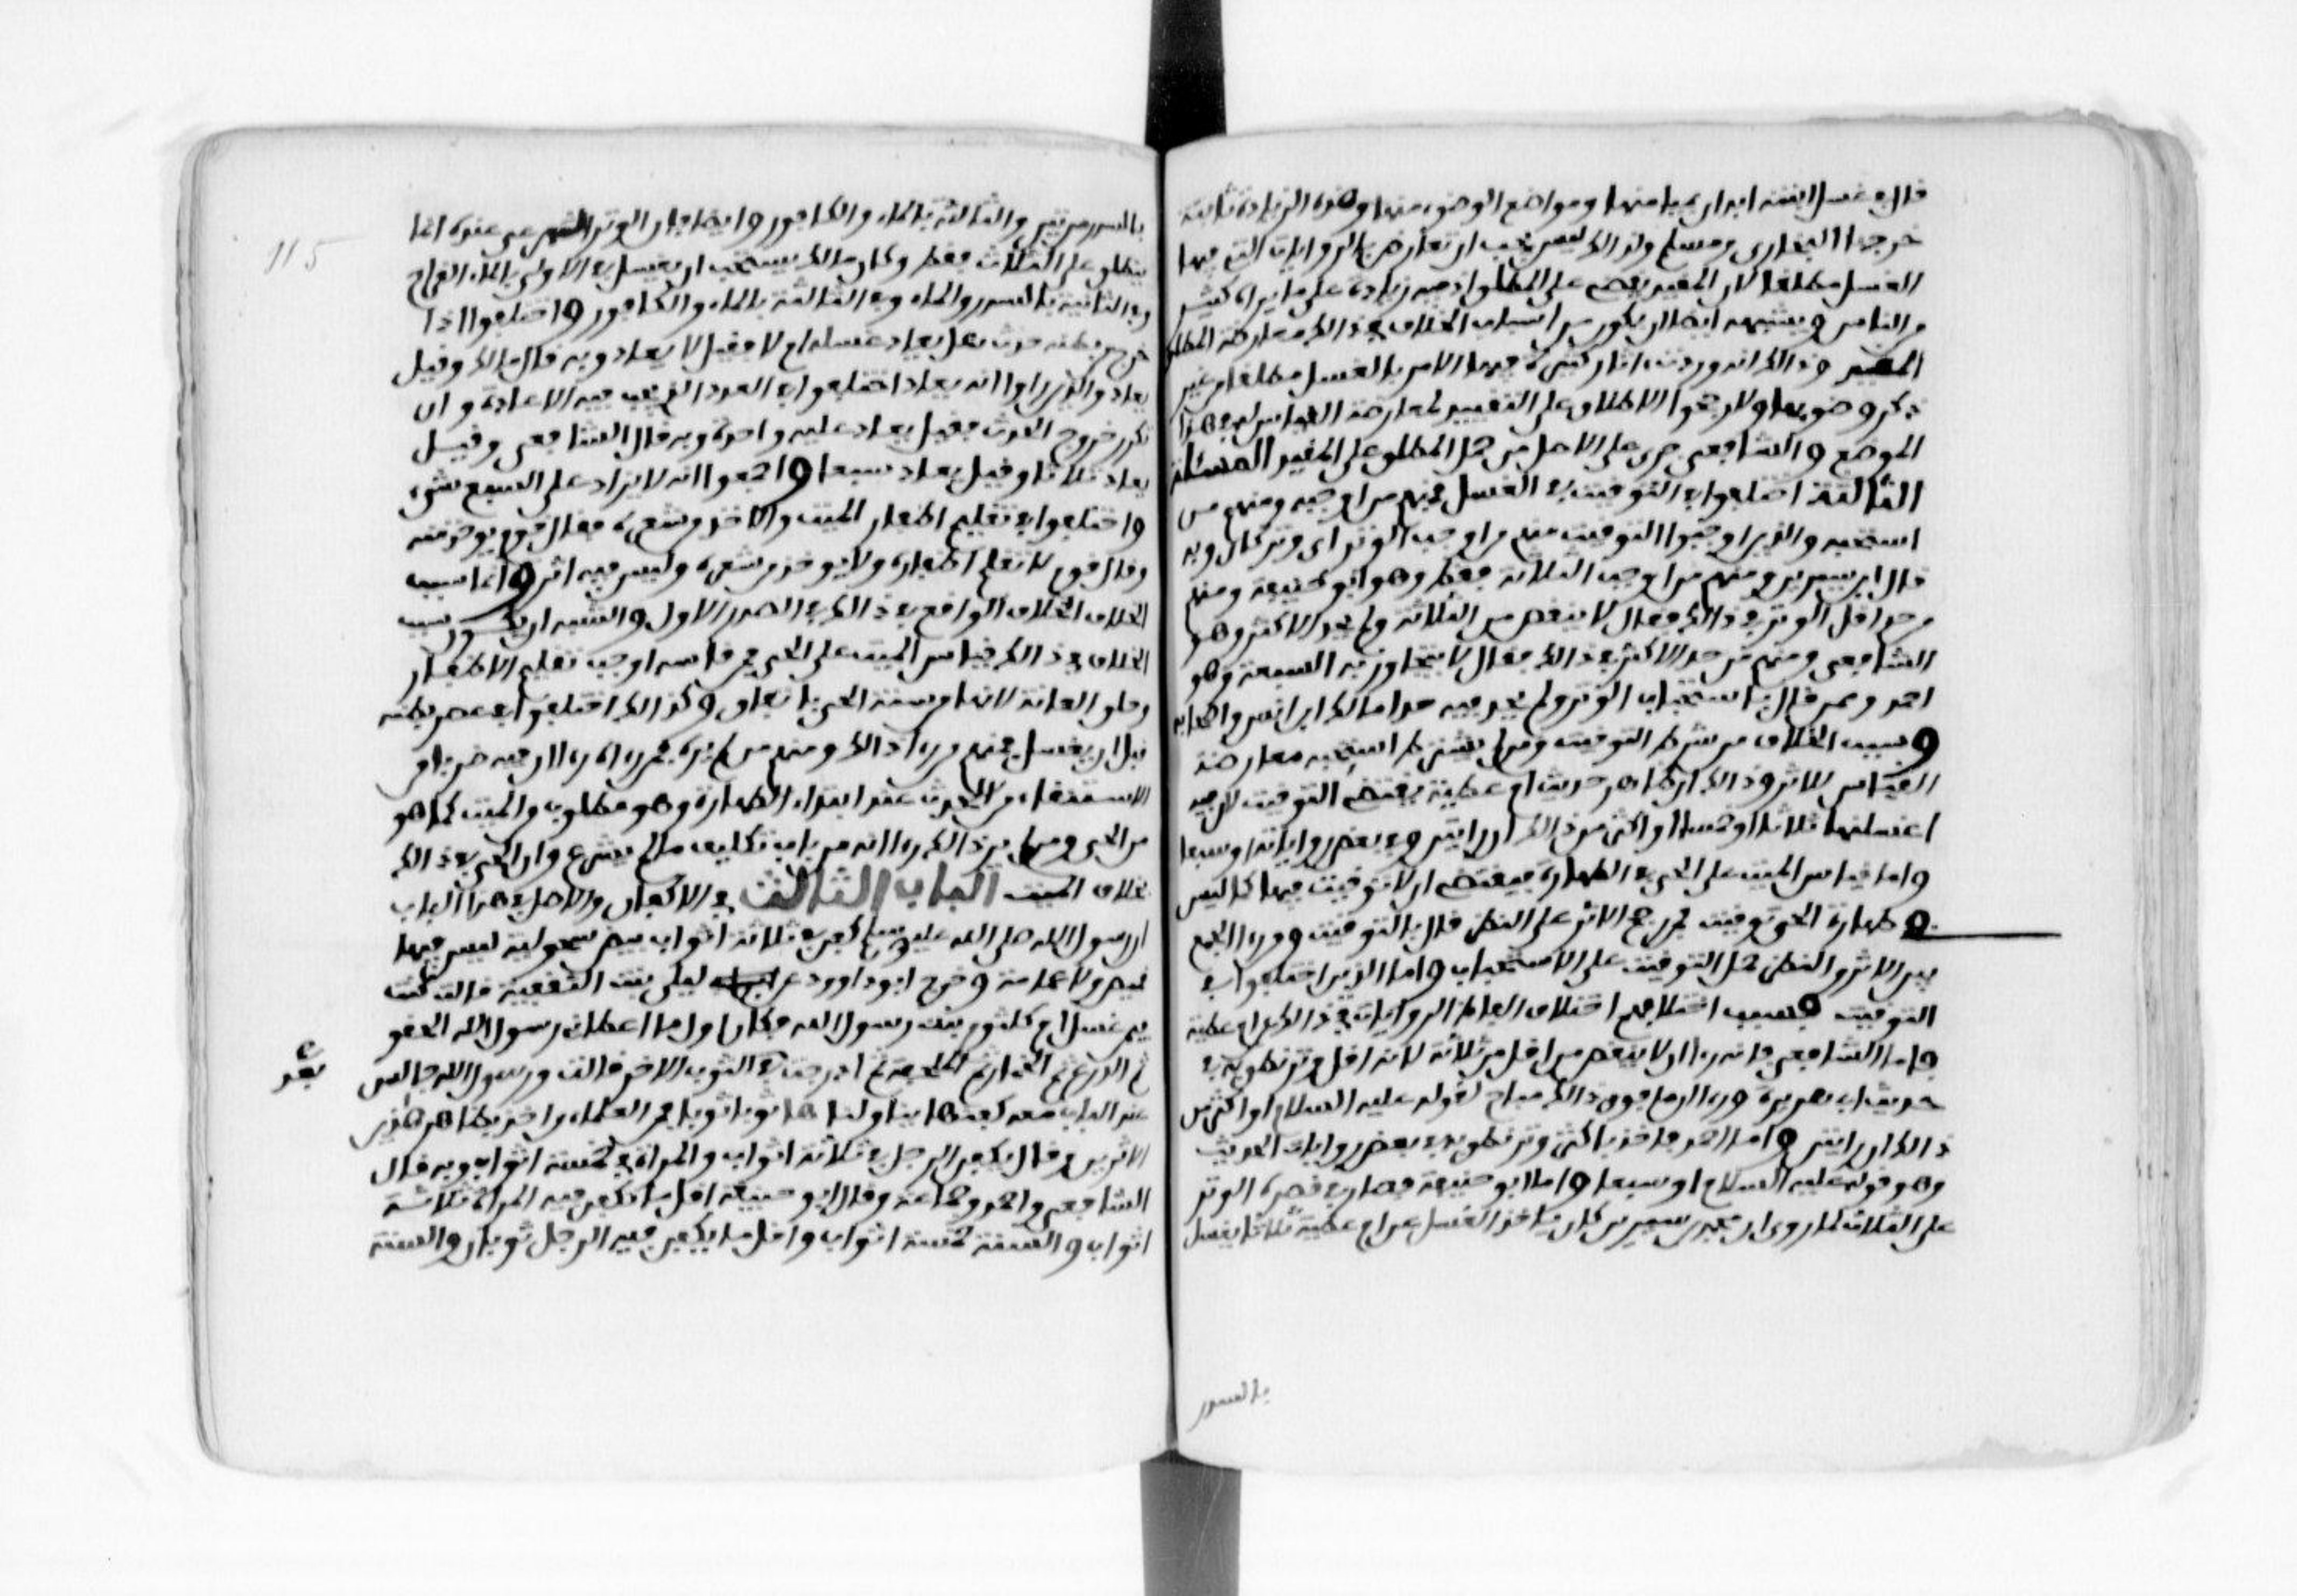 قال في غسل ابنته ابدان بميامنها ومواضع الوضوء منها وهذه الزيادة ثابتة
خرجها البخاري ومسلم ولذالك ليس يجب ان تعارض بالروايات التي فيها
الغسل مطلقا لان المقيد يقضي على المطلق اذ فيه زيادة على ما يراه كثير
من الناس ويشبه ايضا ان يكون من اسباب الخلاف في ذالك معارضة المطلق
المقيد وذالك انه وردت اثار كثيرة فيها الامر بالغسل مطلقا من غير
ذكر وضوء فيها ولا رجحوا الاطلاق على التقييد لمعارضة القياس له في هذا
الموضع والشافعي جرى على الاصل من حمل المطلق على المقيد المسئلة
الثالثة اختلفوا في التوقيت في الغسل فمنهم من اوجبه ومنهم من
استحبه والذين اوجبوا التوقيت منهم من اوجب الوتر اي وتر كان وبه
قال ابن سيرين ومنهم من اوجب الثلاثة فقط وهو ابو حنيفة ومنهم
من حد اقل الوتر في ذالك فقال لا ينقص من الثلاثة ولم يحد الاكثر وهو
الشافعي ومنهم من حد الاكثر في ذالك فقال لا يتجاوز به السبعة وهو
احمد وممن قال باستحباب الوتر ولم يحد فيه حدا مالك ابن انس واصحابه
وسبب الخلاف من شرط التوقيت ومن لم يشترط استحبه معارضة
القياس للاثر وذالك ان ظاهر حديث ام عطية يقتضي التوقيت لان فيه
اغسلنها ثلاثا او خمسا او اكثر من ذالك ان رايتن وفي بعض رواياته او سبعا
واما قياس الميت على الحي في الطهارة فيقتضي ان لا توقيت فيها كما ليس
في طهارة الحي توقيت فمن رجح الاثر على النظر قال بالتوقيت ومن رءا الجمع
بين الاثر والنظر حمل التوقيت على الاستحباب واما الذين اختلفوا في
التوقيت فسبب اختلافهم اختلاف الفاظ الروايات في ذالك عن ام عطية
فاما الشافعي فانه رءا ان لا ينقص من اقل من ثلاثة لانه اقل وتر نطق به في
حديث ام عطية ورءا ان ما فوق ذالك مباح لقوله عليه السلام او اكثر من
ذالك ان رايتن واما احمد فاخذ باكثر وتر نطق به في بعض روايات الحديث
وهو قوله عليه السلام او سبعا واما ابو حنيفة فصار في قصره الوتر
على الثلاث لما روى ان محمد بن سيرين كان ياخذ الغسل عن ام عطية ثلاثا يغسل
بالسدر
115
بالسدر مرتين والثالثة بالماء والكافور وايضا فان الوتر الشرعي عنده انما
ينطلق على الثلاث فقط وكان مالك يستحب ان يغسل في الاولى بالماء القراح
وفي الثانية بالسدر والماء وفي الثالثة بالماء والكافور واختلفوا اذا
خرج من بطنه حدث هل يعاد غسله ام لا فقيل لا يعاد وبه قال مالك وقيل
يعاد والذين راوا انه يعاد اختلفوا في العدد الذي يجب فيه الاعادة وان
تكرر خروج الحدث فقيل يعاد عليه واحدة وبه قال الشافعي وقيل
يعاد ثلاثا وقيل يعاد سبعا واجمعوا انه لا يزاد على السبع شيء
واختلفوا في تقليم اظفار الميت والاخذ من شعره فقال قوم يوخذ منه
وقال قوم لا تقلم اظفاره ولا يوخذ من شعره وليس فيه اثر واما سبب
الخلاف الخلاف الواقع في ذالك في الصدر الاول والشبه ان يكون سبب
الخلاف في ذالك قياس الميت على الحي فمن قاسه اوجب تقليم الاظفار
وحلق العانة لانها من سنة الحي باتفاق وكذالك اختلفوا في عصر بطنه
قبل ان يغسل فمنهم من رءا ذالك ومنهم من لم يره فمن رءاه رءا ان فيه ضربا من
الاستنقاء من الحدث عند ابتداء الطهارة وهو مطلوب من الميت كما هو
من الحي ومن لم ير ذالك رءا انه من باب تكليف ما لم يشرع وان الحي في ذالك
بخلاف الميت الباب الثالث في الاكفان والاصل في هذا الباب
ان رسول الله صلى الله عليه وسلم كفن في ثلاثة اثواب بيض سحولية ليس فيها
قميص ولا عمامة وخرج ابو داوود عن ليلى بنت الثقفية قالت كنت
فيمن غسل ام كلثوم بنت رسول الله فكان اول ما اعطاني رسول الله الحقو
ثم الدرع ثم الخمار ثم الملحفة ثم ادرجت بعد في الثوب الاخر قالت ورسول الله جالس
عند الباب معه كفنها يناولناها ثوبا ثوبا فمن العلماء من اخذ بظاهر هاذين
الاثرين فقال يكفن الرجل في ثلاثة اثواب والمراة في خمسة اثواب وبه قال
الشافعي واحمد وجماعة وقال ابو حنيفة اقل ما تكفن فيه المراة ثلاثة
اثواب والسنة خمسة اثواب واقل ما يكفن فيه الرجل ثوبان والسنة